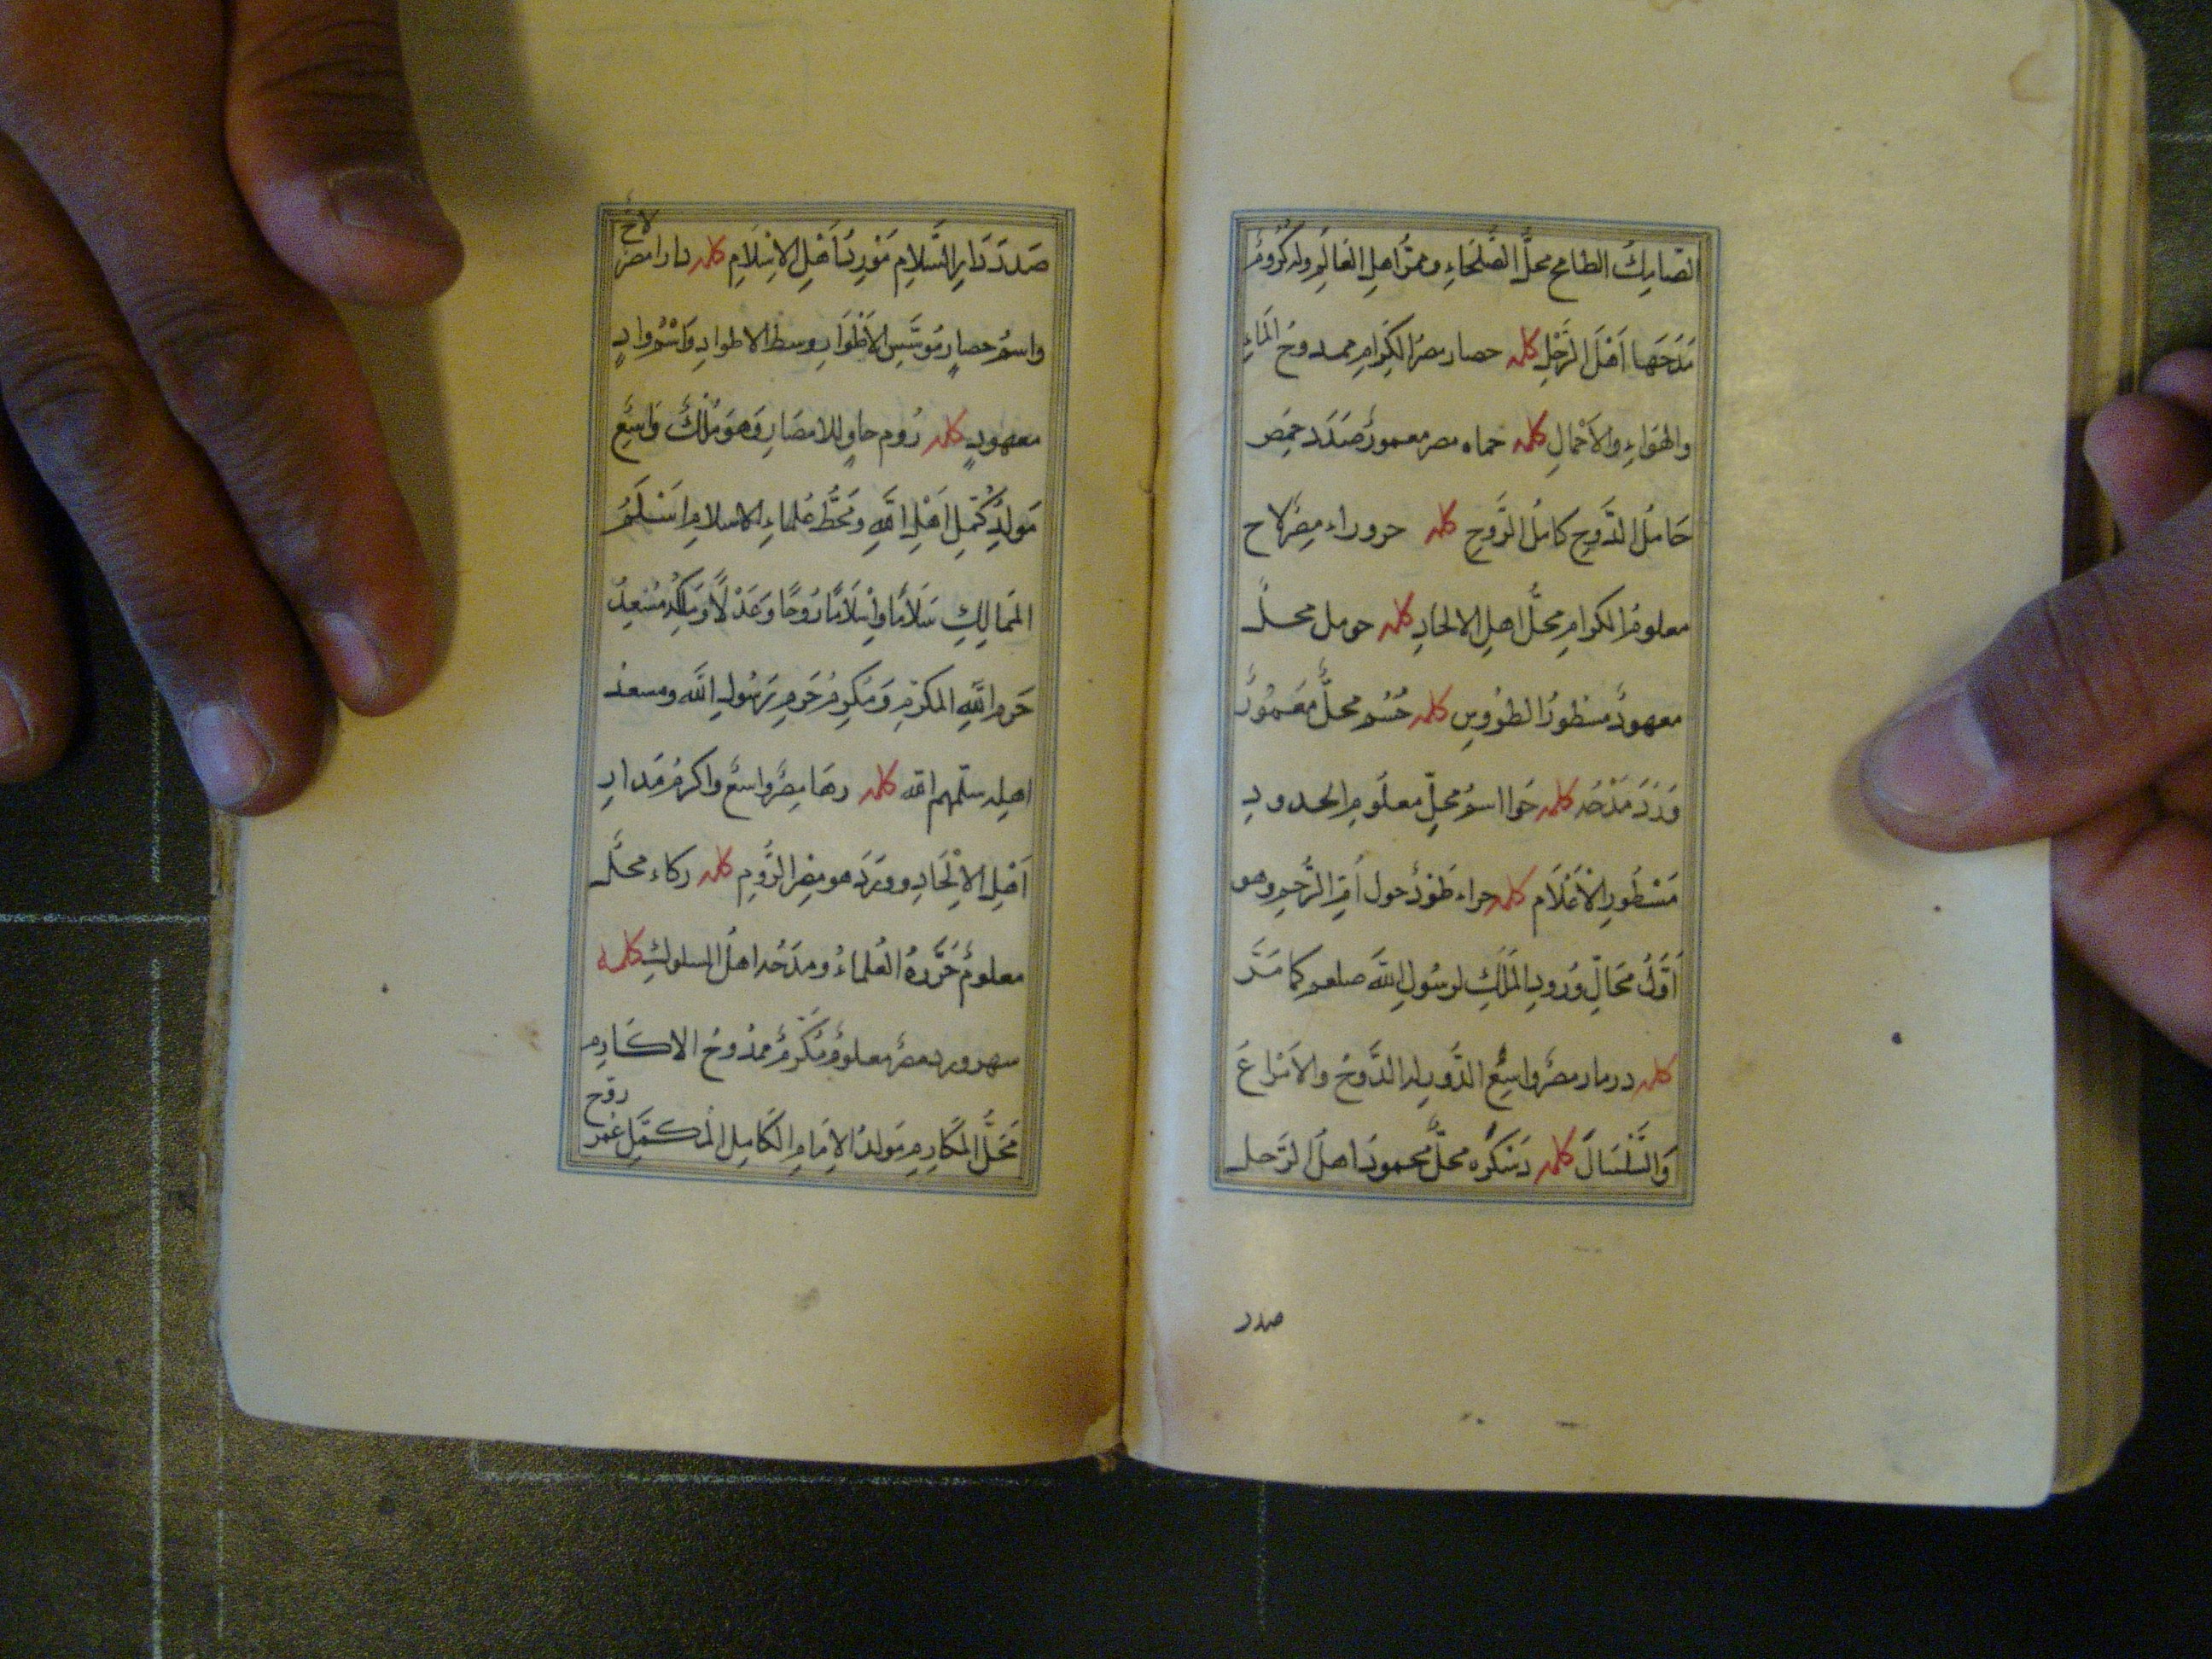 الصامك الطامح محل الصلحاء وممر اهل العالم وله كروم
مَدَحَها اَهْلَ الرَّحْلِ كلمه حصار مصرُ الكِرَامِ ممدوحُ الماءِ
والهَوَاءِ والاَحْمَالِ كلمه حماه مصر معمورٌ صَدَدَ حِمَص
حَامِلُ الدَّوحِ كامِلُ الرَّوحِ كلمه حروراء مِصْرٌ لاح
معلومُ الكرامِ محلُّ اهلِ الالحادِ كلمه حومل محلٌ
معهودٌ مسطورُ الطُرُوسِ كلمه حُسُم محلٌّ مَعْمُورٌ
وَرَدَ مَدْحُه كلمه حَوا اسمُ محلٍّ معلَومِ الحدودِ
مَسْطُورِ الاَعْلَام كلمه حراء طَوْدٌ حول اُمِّ الرُّحمِ وهو
اَوَّلُ مَحَالِّ وُرُودِ المَلَكِ لرسُولِ اللهِ صلعم كما مَرَّ
كلمه درمار مصرٌ واسِعُ الدُّورِ له الدَّوحُ والامْرَاعَ
وَالسَّلْسَالَ كلمه دَسْكَرَه محلٌّ محمودُ اهلُ الرَّحل
صدد
صَدَدَ دَارِ السَّلامِ مَوْرِدُ اَهْلِ الاِسْلَامِ كلمه دارا مصرٌ
لاح
واسمُ حصارٍ مُوسَّسِ الاَطْوَارِ وسط الاطوادِ وَاسْمُ وادٍ
معهودٍ كلمه رُوم حاوٍ للامصَارِ وَهُوَ مُلْكٌ وَاسِعٌ
مَولِدُ كُمَّلِ اَهْلِ اللهِ وَمَحَطُّ عُلماءِ الاسلامِ اَسْلَمُ
المَمَالِكِ سَلَامًا وَاِسْلَامًا رَوحًا وَعَدْلًا وَمَلِكُه مُسْعِدُ
حَرمِ اللهِ المكرَّمِ وَمُكرِمُ حَرَمِ رَسُولِ اللهِ ومسعد
اهلِه سلَّمهم الله كلمه رهَا مِصْرٌ واسعٌ واكرمُ مَدارِ
اَهْلِ الاِلْحَادِ ووَرَدَ هو مِصْرُ الرُّومِ كلمه ركاء محلٌ
معلومٌ حَرَّرَهُ العُلماءُ ومدَحُه اهلُ السلوكِ كلمه
سهرورد مصرٌ معلومٌ مُكَرَّمٌ ممدُوحُ الاكارم
مَحَلُّ المَكَارِمِ مَولدُ الاِمَامِ الكَامِلِ المُكَمَّلِ عُمَر
روح